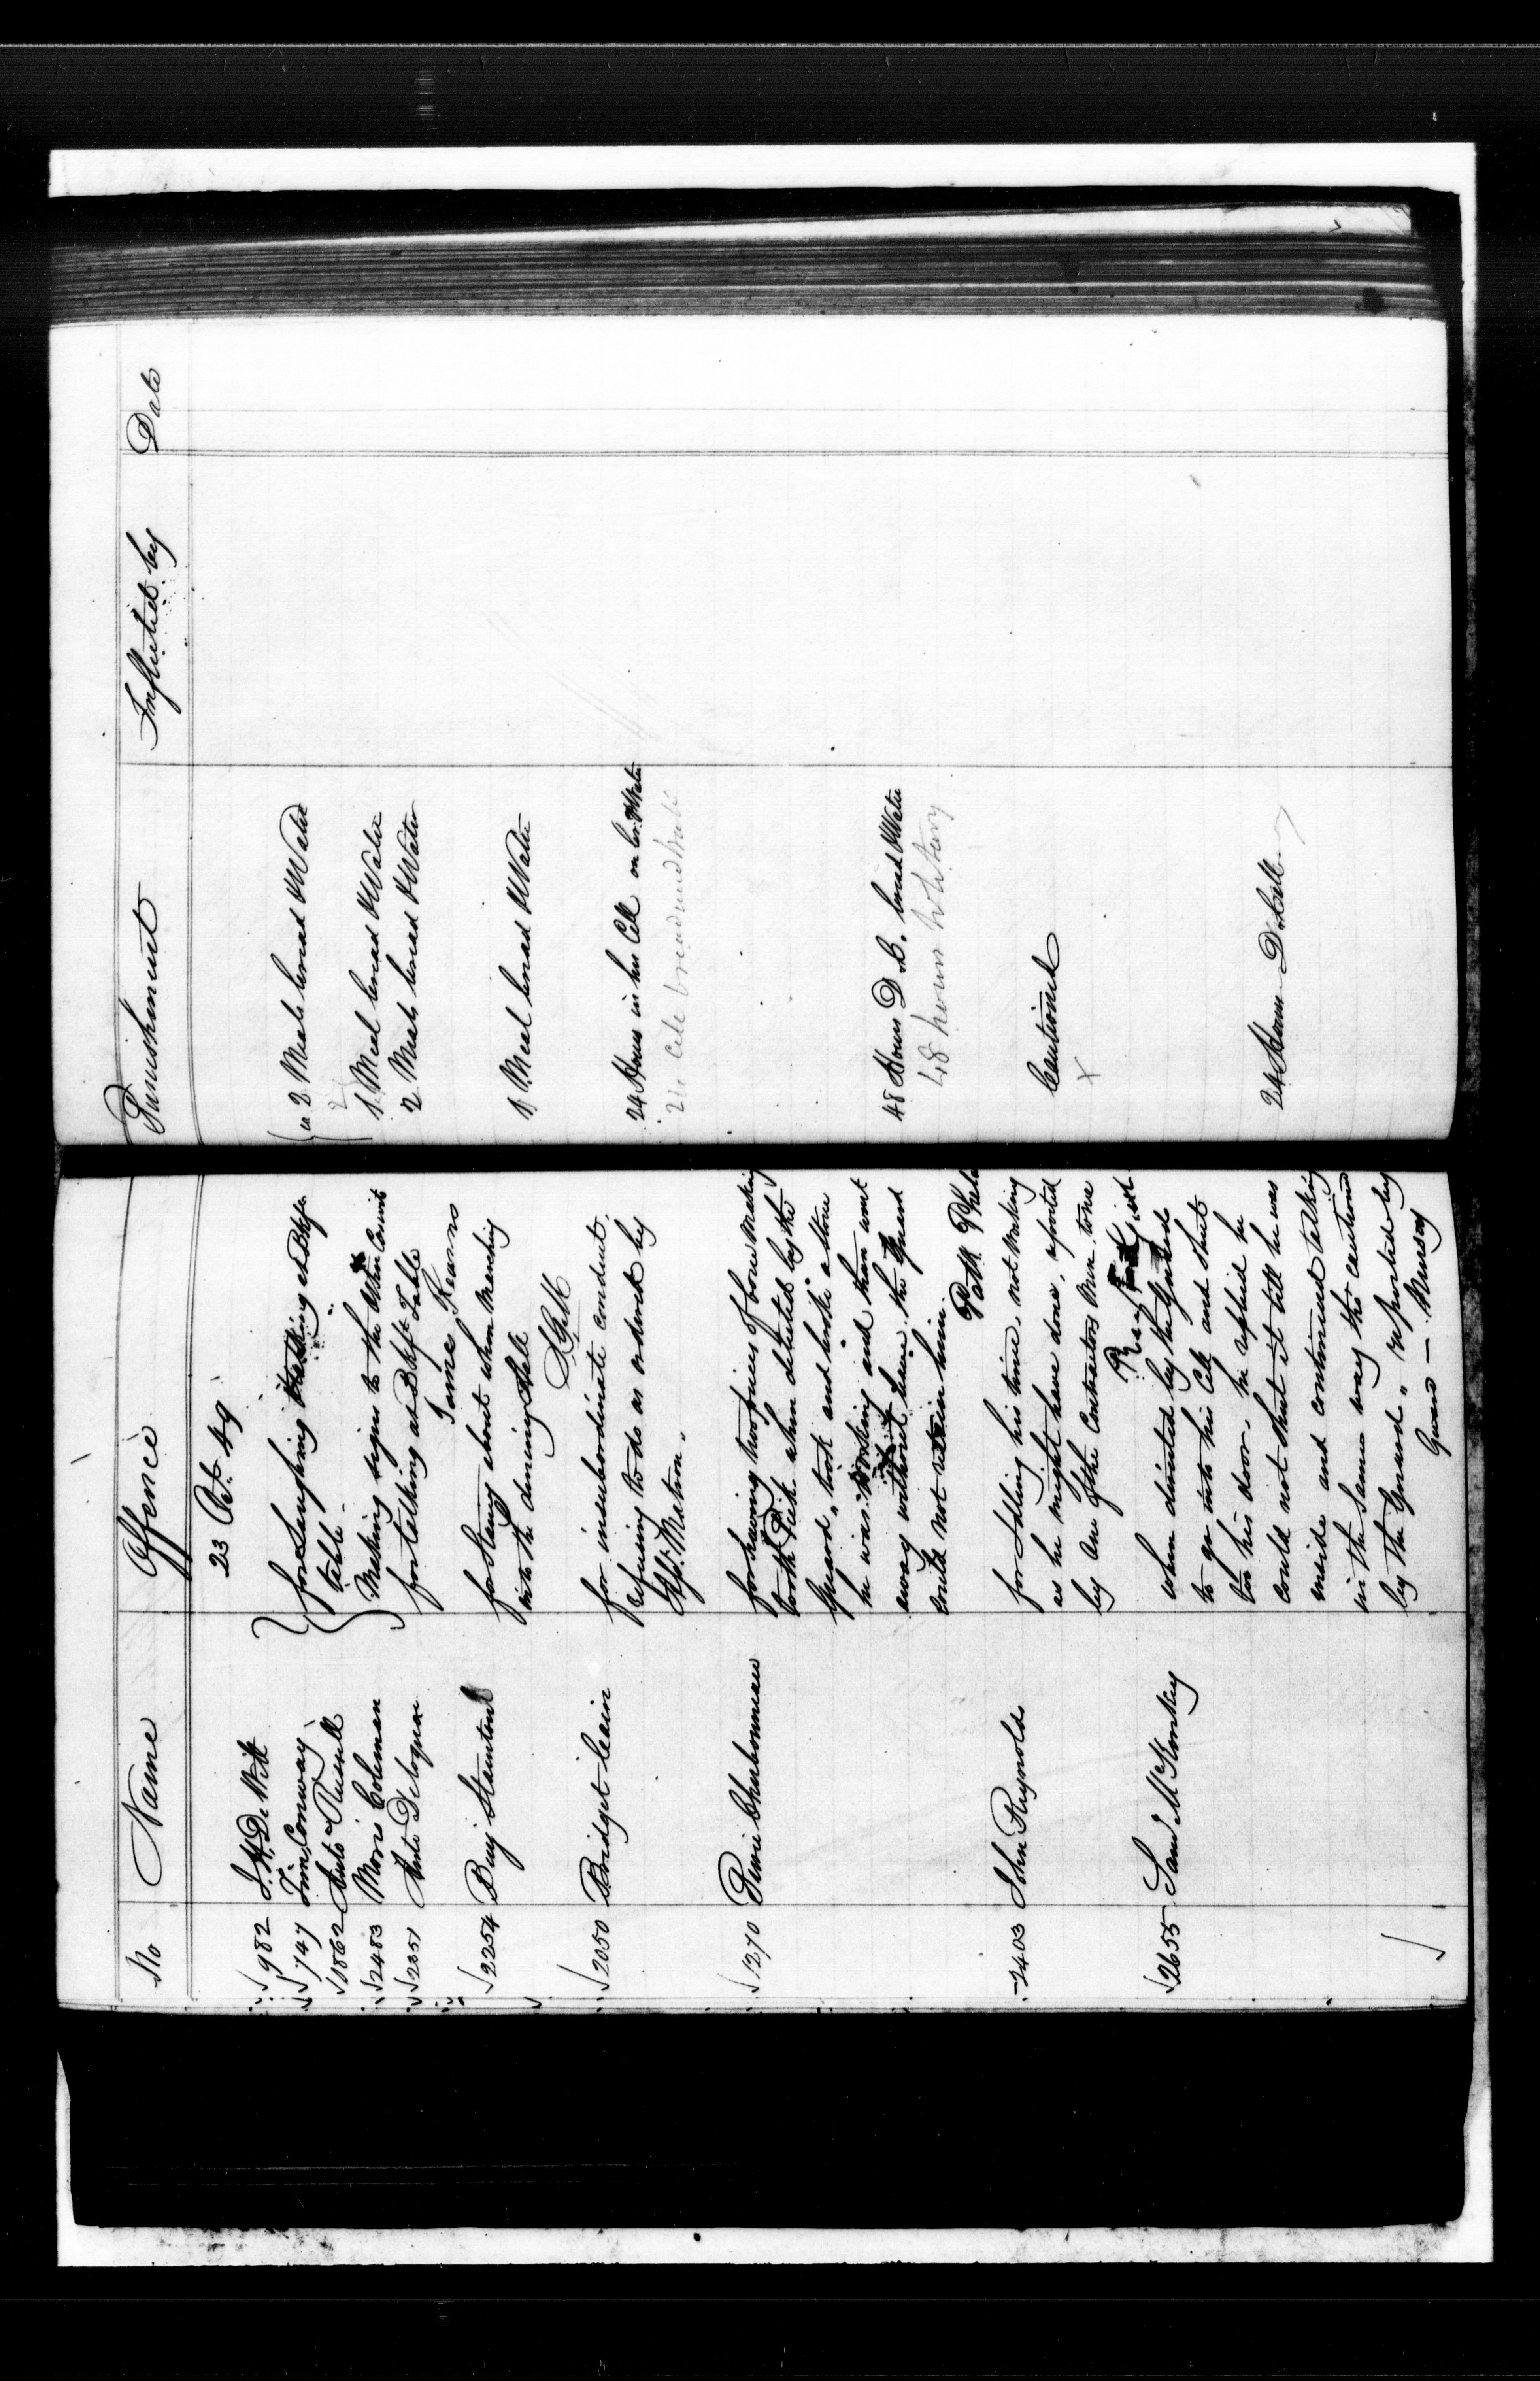 No Name Offence Punishment Inflicted by Date
23 Oct. 49
982 J. H. De Witt
747 Tim Conway
1862 Ante Russell
for Laughing at Bkfs
table
2 Meals bread & Water
2483 Morris Coleman Making signs to the 1 Meal bread & Water
2351 Ante Deloquer for talking at Bkft Table 2 Meals bread & Water
James Kearns
2254 Benj Staunton for Staring about when Marching 1 Meal bread & Water
into the dining Hall
2050 Bridget Cain for insubordinate conduct. 24 Hours in her Cell on br. & Water
refusing to do as ordered by 24 Cell bread and water
Matron.
1270 Pierre Charbonneau for having two pieces of bone Making
tooth Pick when detected by the
Guard, took and broke a stone
he was working and then went
away without leave the Guard
could not retain him.
Patk Phela
48 Hours D. C. bread & Water
48 hours solitary
2403 John Reynolds for Idling his time, not Making Cautioned
as he might have done, reported X
by one of the Contractors Men tone
2655 Saml McKonkey when directed by the Guard
to go into his Cell and Shut
too his door. he replied he
could not shut it till he was
inside and continued talking
in the same way tho cautioned
by the Guard, reported by
Guard — Mursay
24 Hours D. Cell